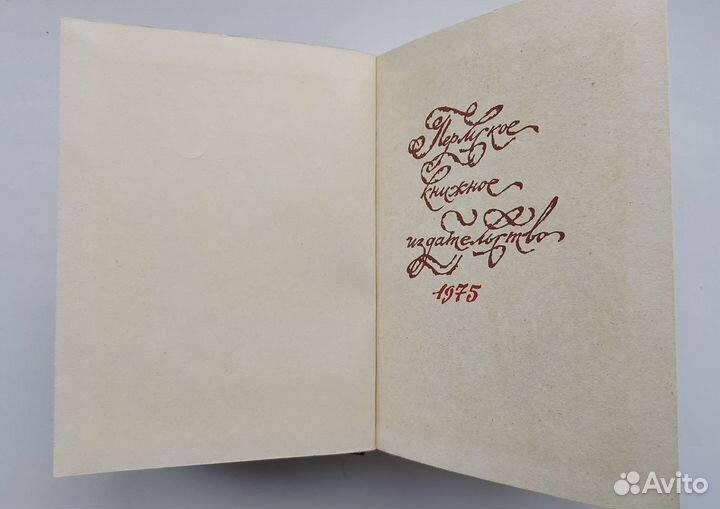 Пермское
книжное
издательство
1975
Avito